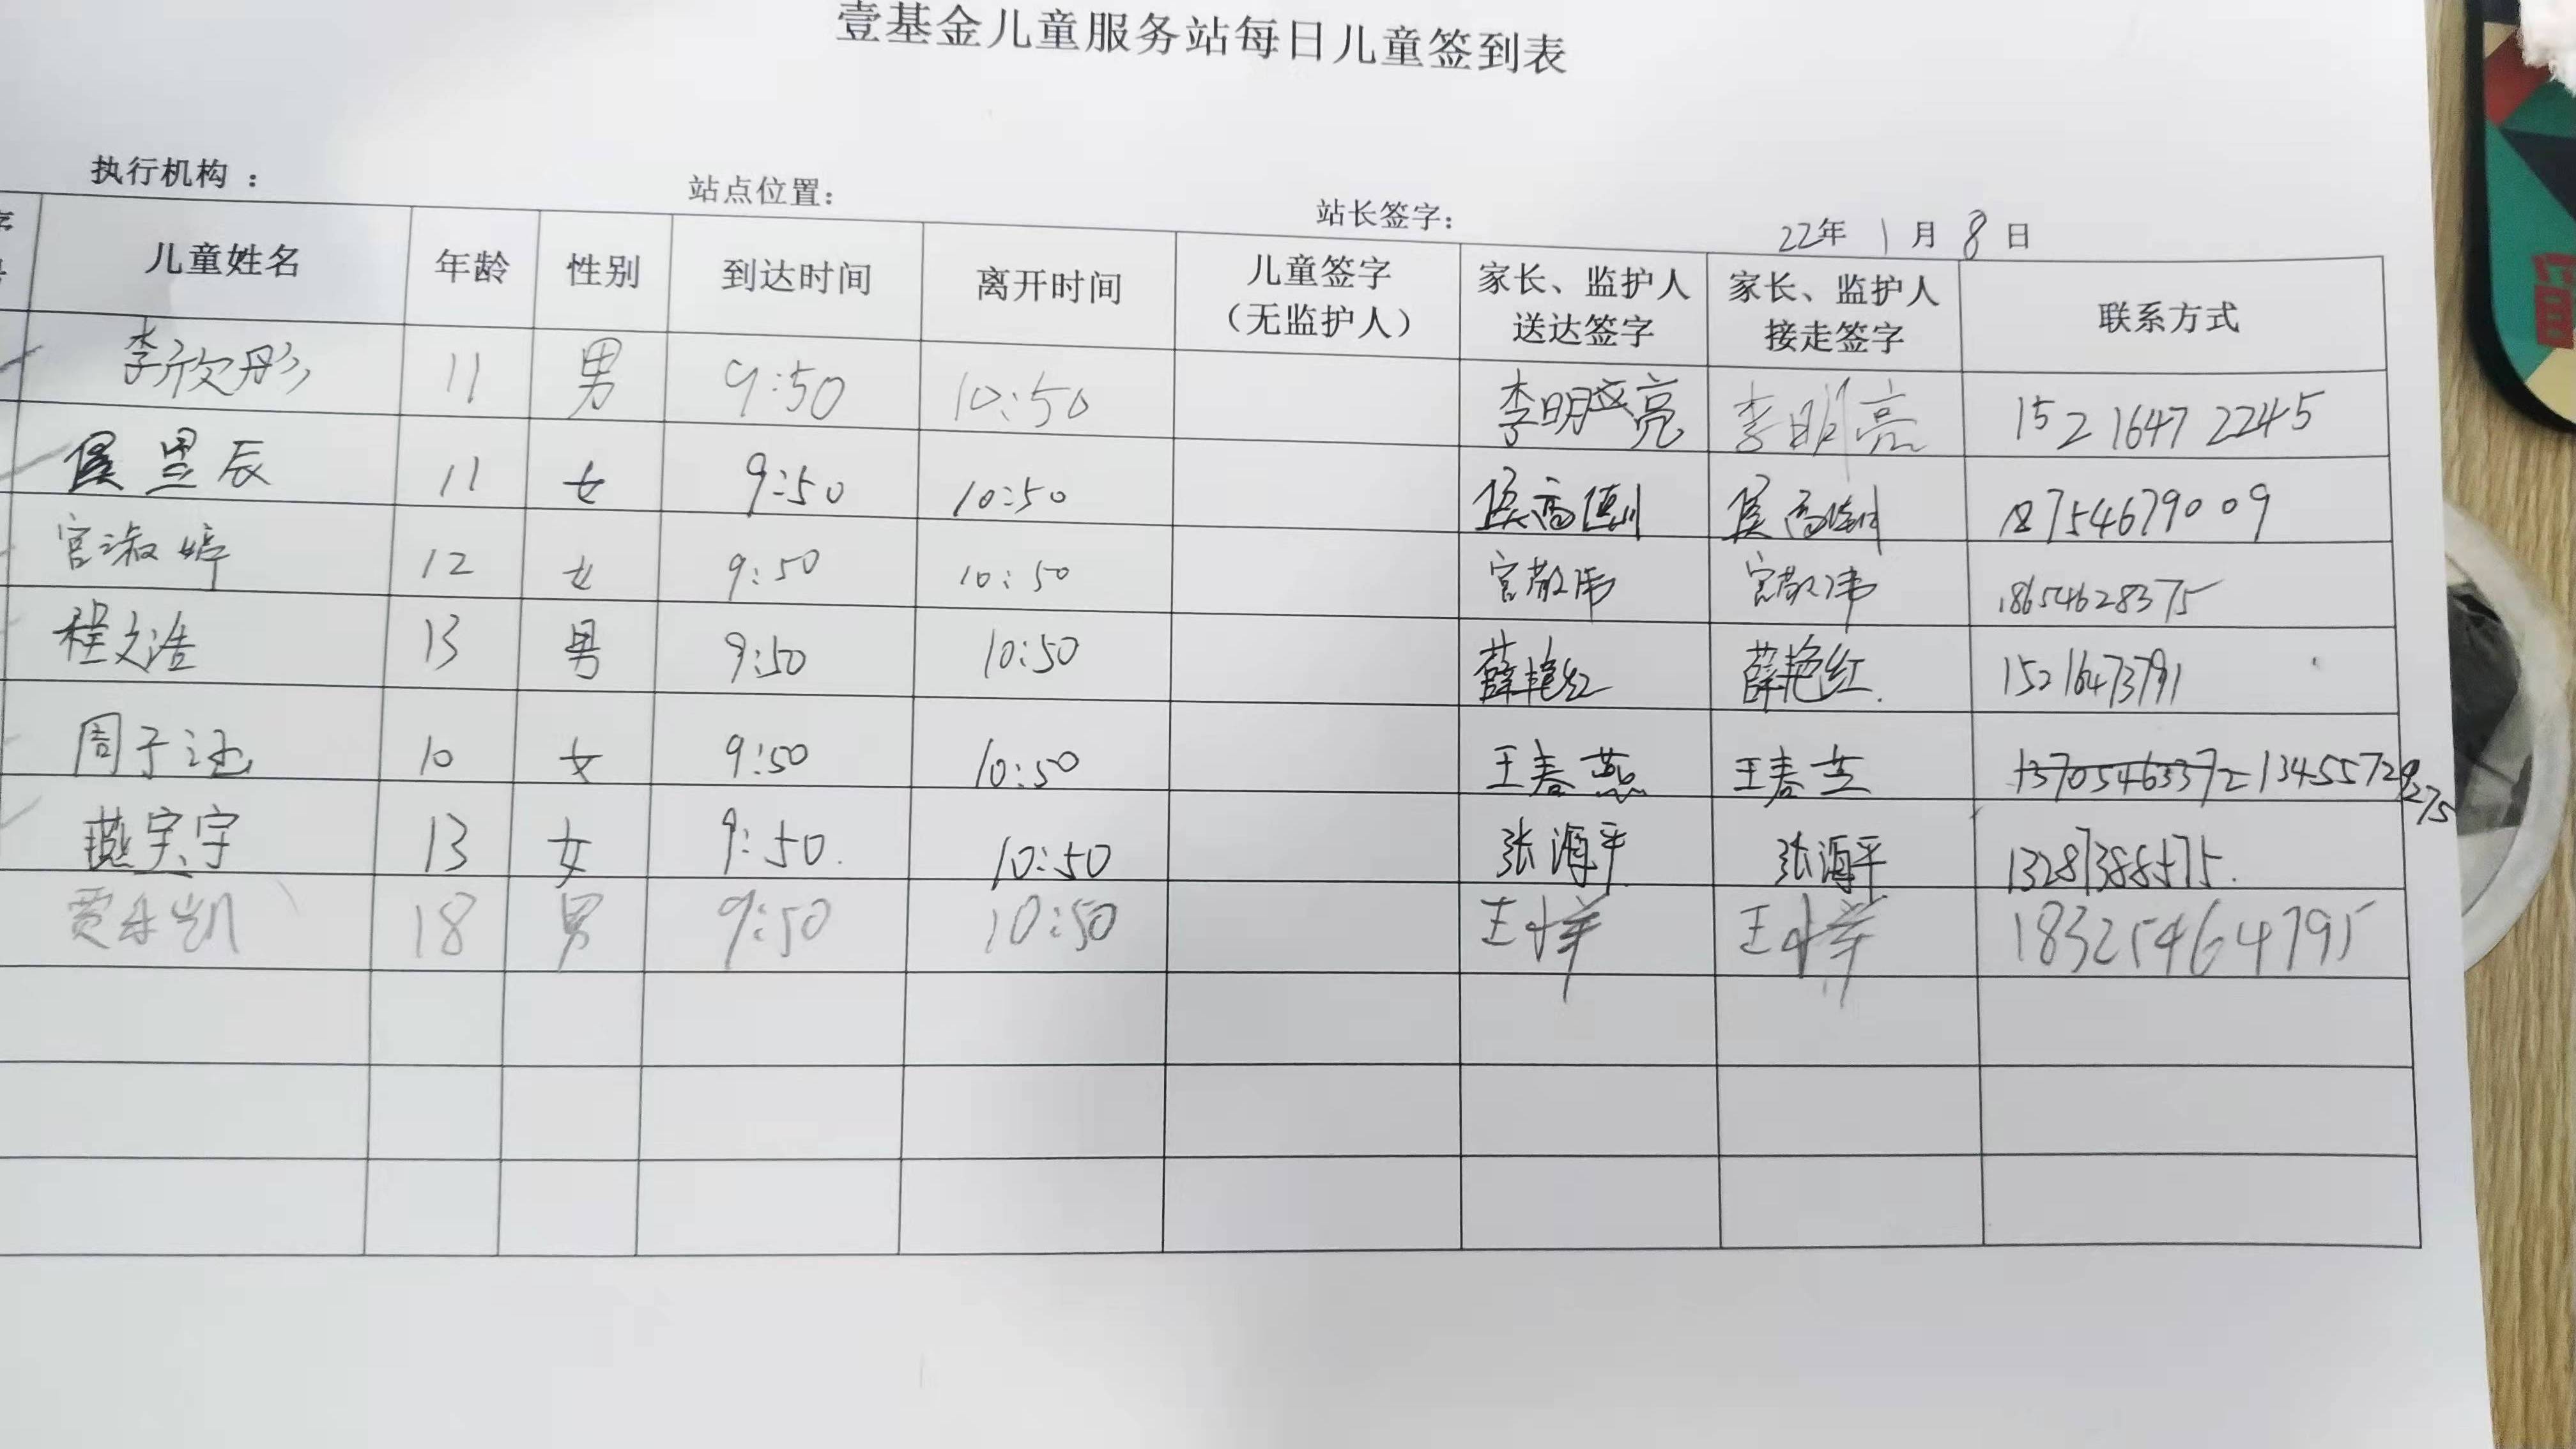 壹基金儿童服务站每日儿童签到表
执行机构： 站点位置： 站长签字： 22年 1月 8日
儿童姓名 年龄 性别 到达时间 离开时间 儿童签字（无监护人） 家长、监护人送达签字 家长、监护人接走签字 联系方式
李欣彤 11 男 9:50 10:50 李明亮 李明亮 15216472245
侯昱辰 11 女 9:50 10:50 18754679009
官淑婷 12 女 9:50 10:50 官敬伟 官敬伟 18654628375
程文浩 13 男 9:50 10:50 薛艳红 薛艳红 15216473791
周子 10 女 9:50 10:50 王春燕 王春 13705463372 13455729275
燕宇 13 女 9:50 10:50 张海平 张海平 13287388575
贾 凯 18 男 9:50 10:50 王 王 18325464795